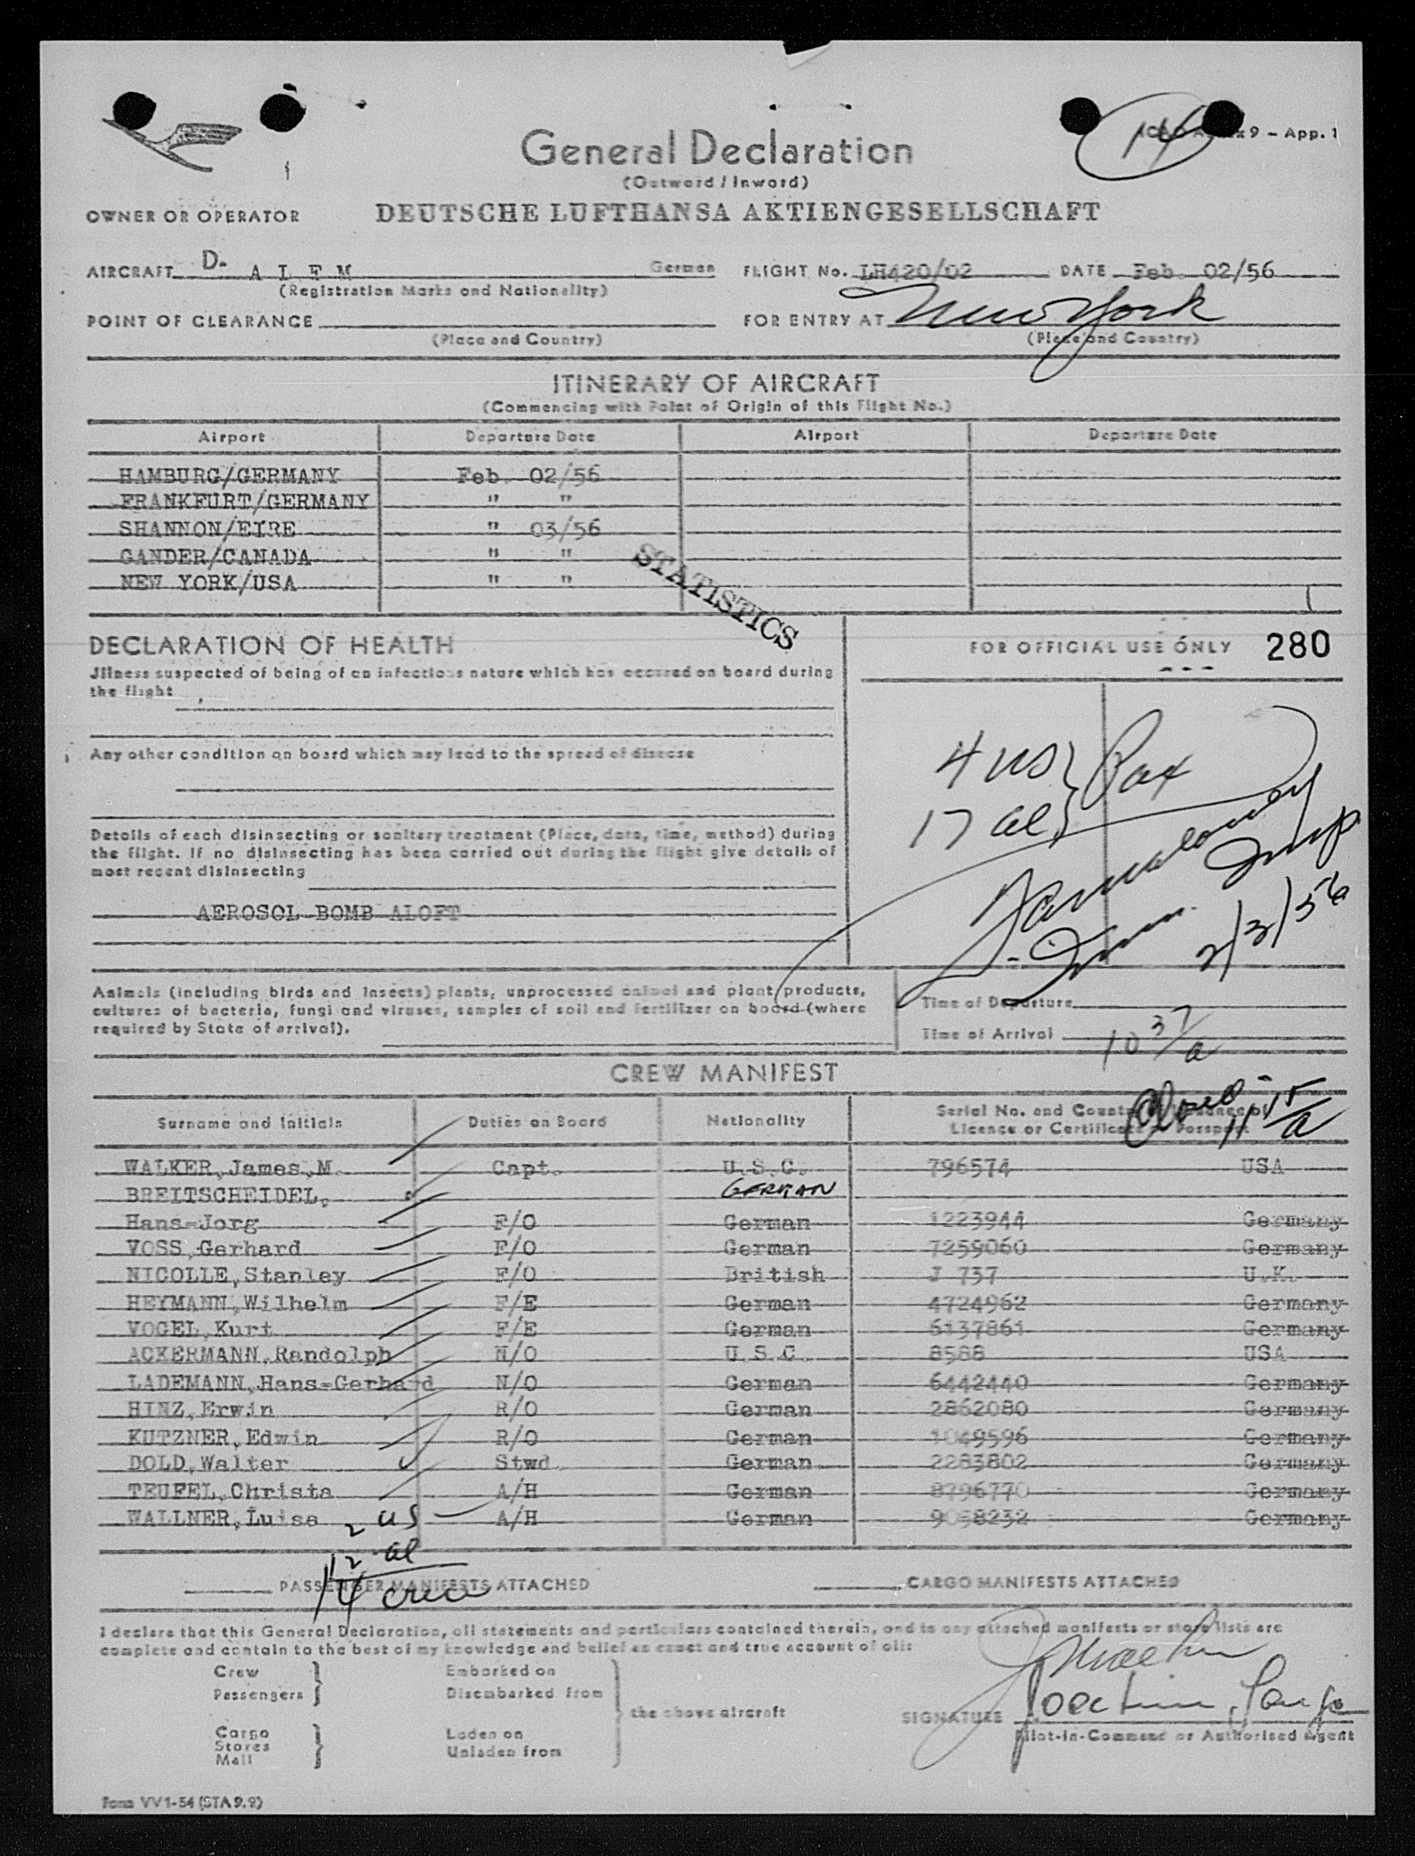 14
ICAO Annex 9 - App. 1
General Declaration
(Outward / Inward)
OWNER OR OPERATOR DEUTSCHE LUFTHANSA AKTIENGESELLSCHAFT
AIRCRAFT D- A L E M German FLIGHT No. LH420/02 DATE Feb. 02/56
(Registration Marks and Nationality)
POINT OF CLEARANCE FOR ENTRY AT New York
(Place and Country) (Place and Country)
ITINERARY OF AIRCRAFT
(Commencing with Point of Origin of this Flight No.)
Airport Departure Date Airport Departure Date
HAMBURG/GERMANY Feb. 02/56
FRANKFURT/GERMANY " "
SHANNON/EIRE " 03/56
GANDER/CANADA " "
NEW YORK/USA " "
STATISTICS
DECLARATION OF HEALTH
FOR OFFICIAL USE ONLY 280
Jllness suspected of being of an infectious nature which has occured on board during
the flight
Any other condition on board which may lead to the spread of disease
4 US } Pax
17 al
Details of each disinsecting or sanitary treatment (Place, date, time, method) during
the flight. If no disinsecting has been carried out during the flight give details of
most recent disinsecting
AEROSOL BOMB ALOFT
Imm. Insp
2/3/56
Animals (including birds and insects) plants, unprocessed animal and plant products,
cultures of bacteria, fungi and viruses, samples of soil and fertilizer on board (where
required by State of arrival).
Time of Departure
Time of Arrival 10 37/a
CREW MANIFEST
Closed 11 15/a
Surname and Initials Duties on Board Nationality Serial No. and Country of Issuance of
Licence or Certificate or Passport
WALKER, James, M. Capt. U.S.C. 796574 USA
BREITSCHEIDEL, GERMAN
Hans-Jorg F/O German 1223944 Germany
VOSS, Gerhard F/O German 7259060 Germany
NICOLLE, Stanley F/O British J 737 U.K.
HEYMANN, Wilhelm F/E German 4724962 Germany
VOGEL, Kurt F/E German 6137861 Germany
ACKERMANN, Randolph N/O U.S.C. 8588 USA
LADEMANN, Hans-Gerhard N/O German 6442440 Germany
HINZ, Erwin R/O German 2862080 Germany
KUTZNER, Edwin R/O German 1049596 Germany
DOLD, Walter Stwd. German 2283802 Germany
TEUFEL, Christa A/H German 8796770 Germany
WALLNER, Luise A/H German 9098232 Germany
2 US
12 al
14 crew
PASSENGER MANIFESTS ATTACHED CARGO MANIFESTS ATTACHED
I declare that this General Declaration, all statements and particulars contained therein, and in any attached manifests or store lists are
complete and contain to the best of my knowledge and belief an exact and true account of all:
Crew Embarked on
Passengers Disembarked from
the above aircraft
Cargo Laden on
Stores
Mail Unladen from
SIGNATURE Joachim
Pilot-in-Command or Authorised Agent
Form VV1-54 (STA 9.9)